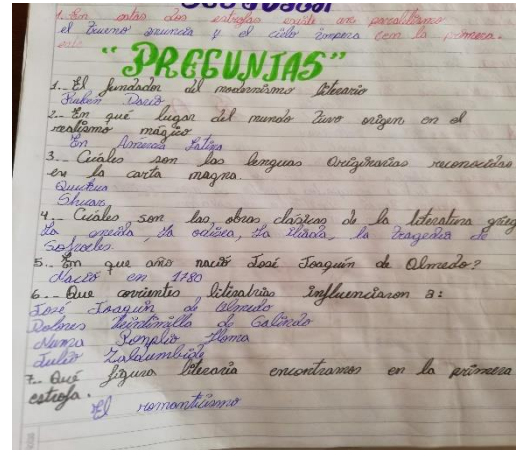 1. Son estas dos estrofas existe un paralelismo
el trueno anuncia y el cielo impera con la primera.
"PREGUNTAS"
1.- El fundador del modernismo literario
Rubén Darío
2.- En qué lugar del mundo tuvo origen en el
realismo mágico
En América Latina
3.- Cuáles son las lenguas Originarias reconocidas
en la carta magna.
Quichua
Shuar
4.- Cuáles son las, obras clásicas de la literatura grieg
La odisea, La Iliada, la tragedia de
Sofocles.
5.- En que año nació José Joaquin de Olmedo?
Nació en 1780
6.- Que corrientes literatrias Influenciaron a:
José Joaquín de Olmedo
Dolores Veintimilla de Galindo
Numa Pompilio Llama
Julio Zaldumbide
7.- Qué figura literaria encontramos en la primera
estrofa.
El romanticismo